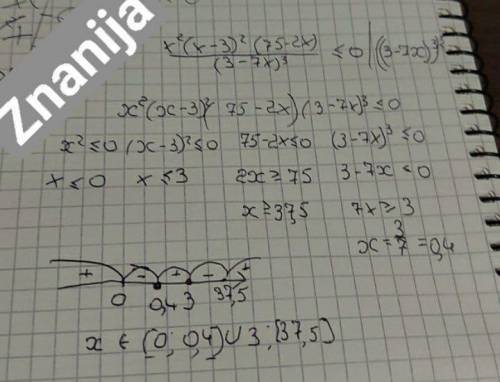 Znanija
x²(x-3)²(75-2x) / (3-7x)³ ≤ 0 | ((3-7x)³)²
x²(x-3)²(75-2x)(3-7x)³ ≤ 0
x² ≤ 0 (x-3)² ≤ 0 75-2x ≤ 0 (3-7x)³ ≤ 0
x ≤ 0 x ≤ 3 2x ≥ 75 3-7x < 0
x ≥ 37,5 7x ≥ 3
x = 3/7 = 0,4
+ - + - +
0 0,4 3 37,5
x ∈ [0; 0,4] ∪ 3; [37,5]